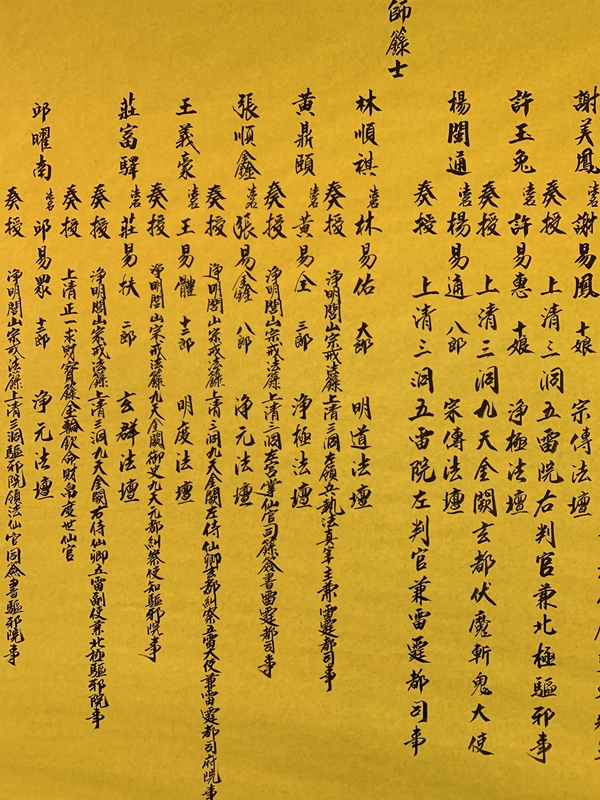 謝美鳳 法名 謝易鳳 十娘 宗傳法壇
奏授 上清三洞五雷院右判官兼北極驅邪事
許玉兔 法名 許易惠 十娘 淨極法壇
奏授 上清三洞九天金闕玄都伏魔斬鬼大使
楊閏通 法名 楊易通 八郎 家傳法壇
奏授 上清三洞五雷院左判官兼雷霆都司事
師籙士
林順祺 法名 林易佑 大郎 明道法壇
奏授 淨明閭山宗戒法籙上清三洞左領兵執法真宰主兼雷霆都司事
黄鼎頤 法名 黄易全 三郎 淨極法壇
奏授 淨明閭山宗戒法籙上清三洞左宮掌仙官司錄簽書雷霆都司事
張順鑫 法名 張易鑫 八郎 淨元法壇
奏授 淨明閭山宗戒法籙上清三洞九天金闕左侍仙卿玄都糾察五雷大使兼雷霆都司府院事
王義豪 法名 王易體 十三郎 明度法壇
奏授 淨明閭山宗戒法籙九天金闕御史九天九都糾察使知驅邪院事
莊富驛 法名 莊易扶 二郎 玄群法壇
奏授 淨明閭山宗戒法籙上清三洞九天金闕右侍仙卿五雷副使兼北極驅邪院事
奏授 上清正一求財寶籙金輪欽命財帛度世仙官
邱曜南 法名 邱易眾 十三郎 淨元法壇
奏授 淨明閭山宗戒法籙上清三洞驅邪院領法仙官同簽書驅邪院事